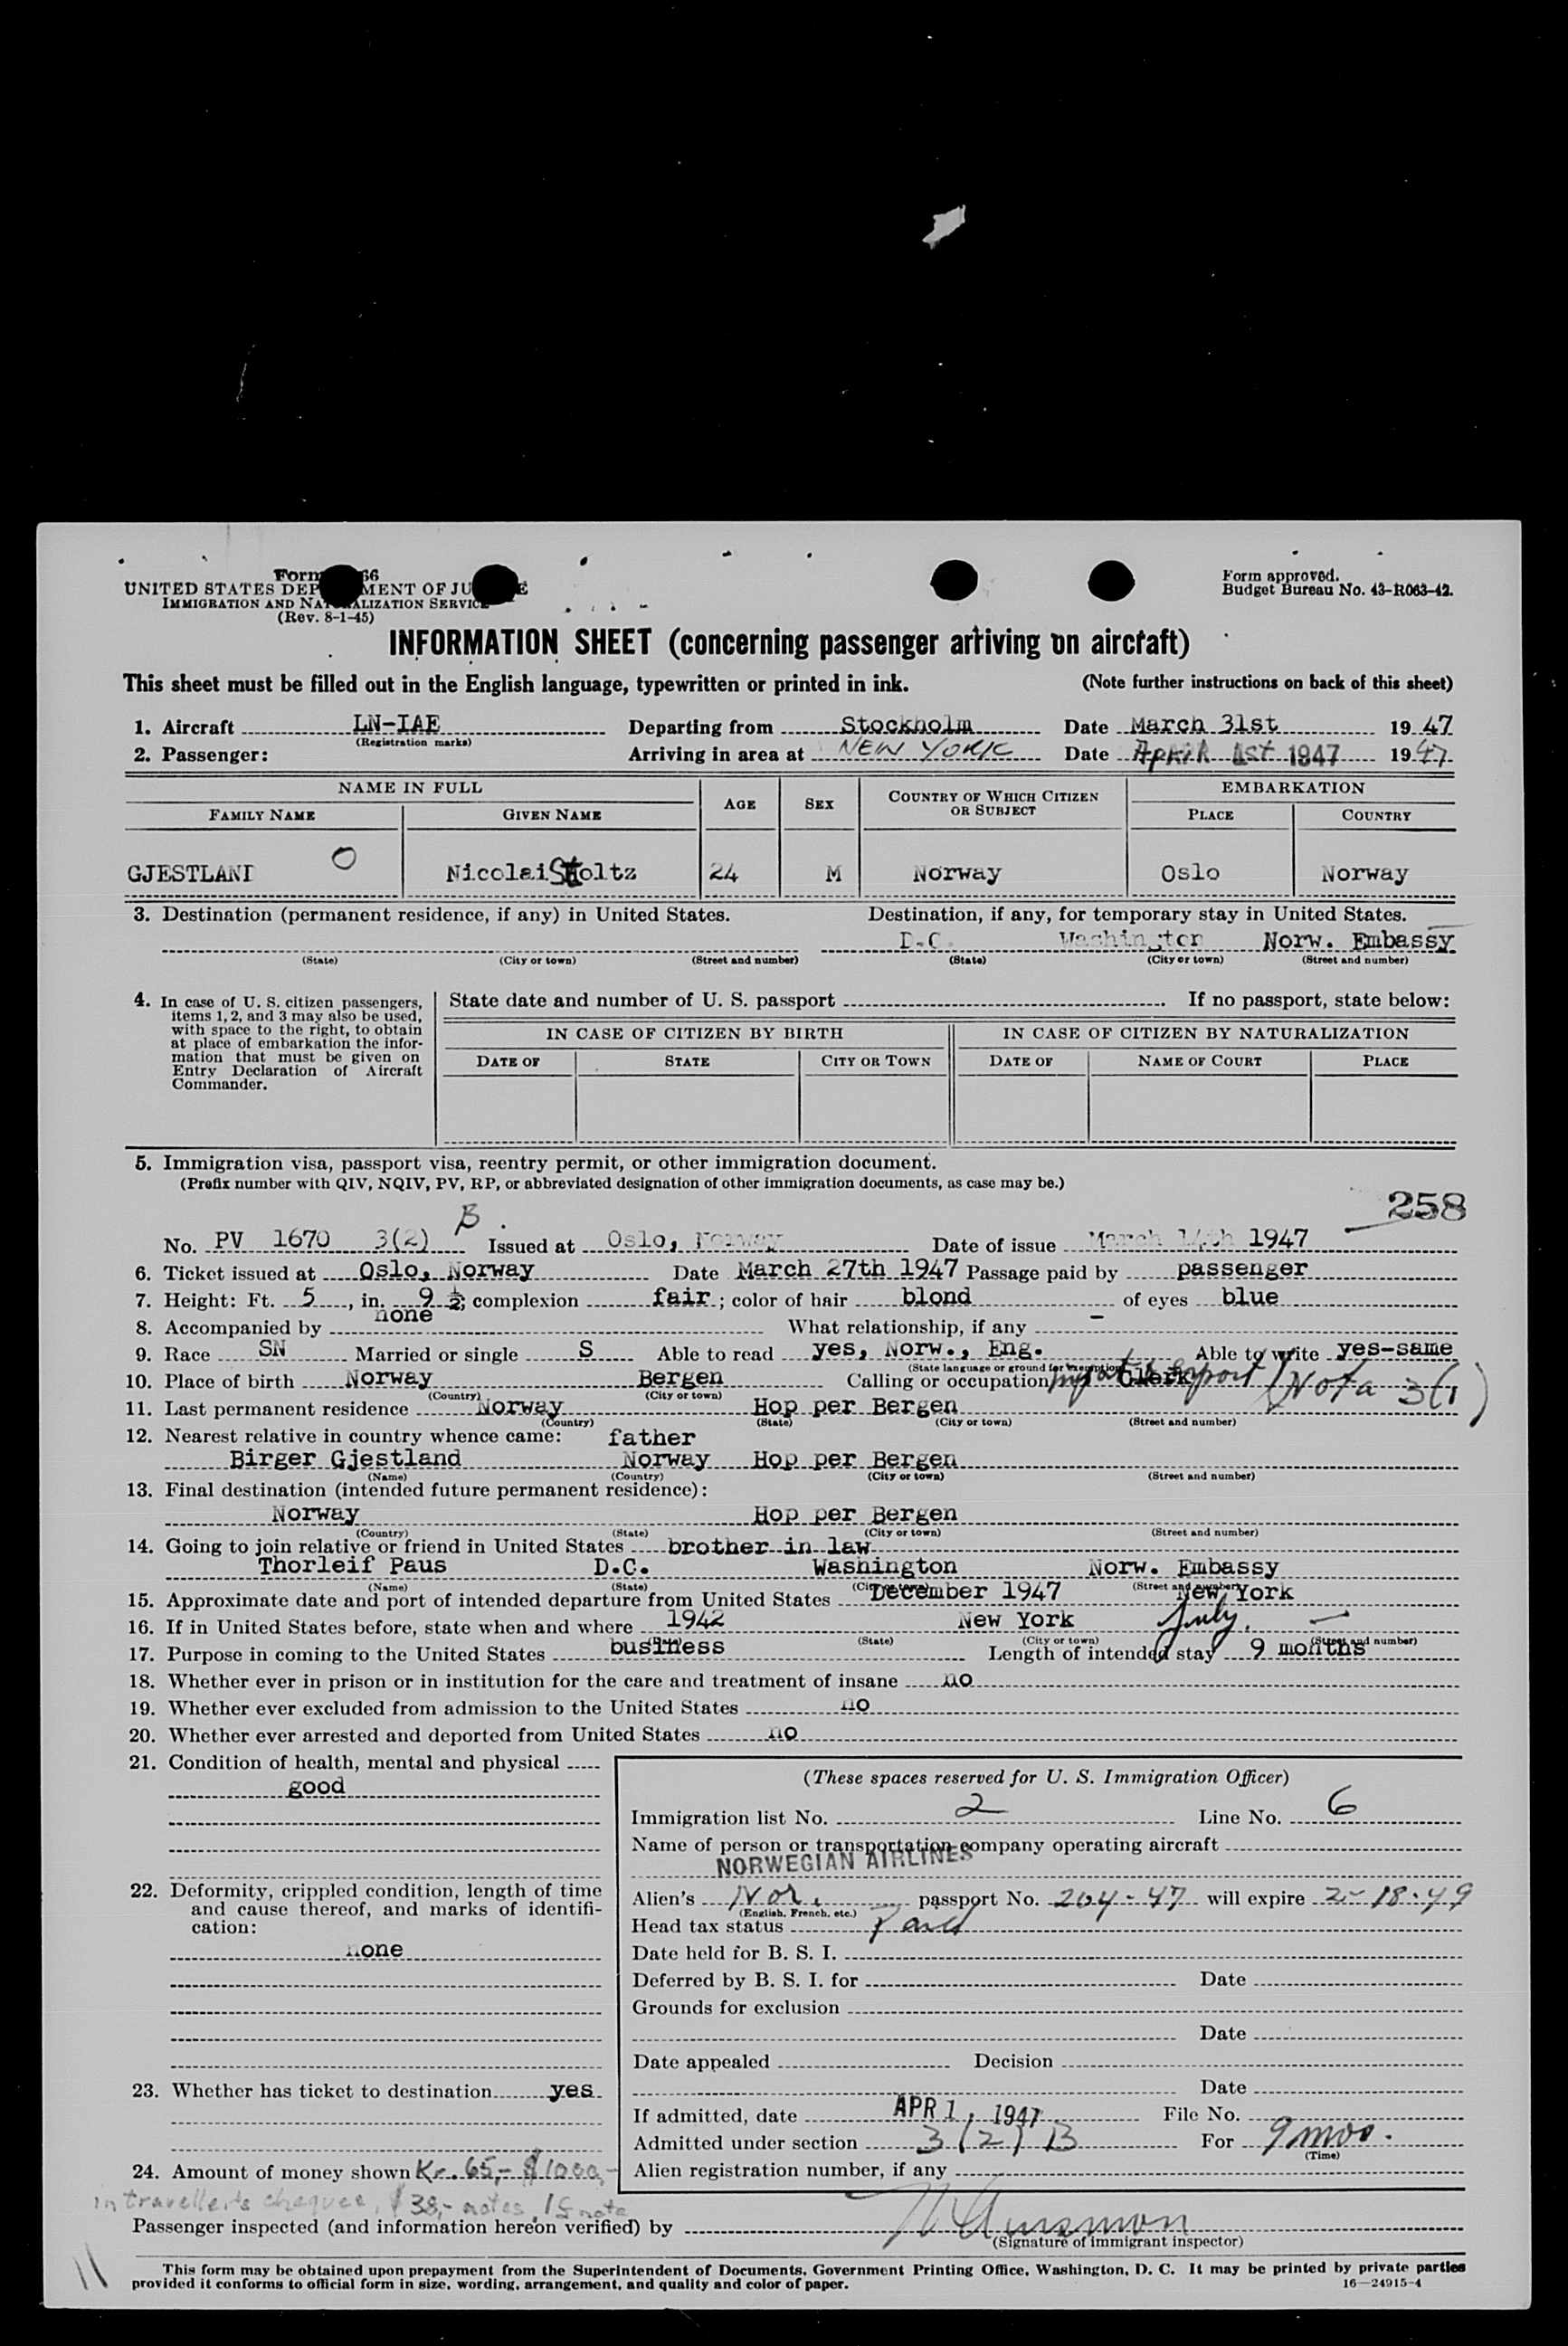 Form 66
UNITED STATES DEP MENT OF JU E
IMMIGRATION AND NATURALIZATION SERVICE
(Rev. 8-1-45)
Form approved.
Budget Bureau No. 43-R063-42.
INFORMATION SHEET (concerning passenger arriving on aircraft)
This sheet must be filled out in the English language, typewritten or printed in ink. (Note further instructions on back of this sheet)
1. Aircraft LN-IAE Departing from Stockholm Date March 31st 19 47
(Registration marks)
2. Passenger: Arriving in area at NEW YORK Date April 1st 1947 19 47
NAME IN FULL AGE SEX COUNTRY OF WHICH CITIZEN OR SUBJECT EMBARKATION
FAMILY NAME GIVEN NAME PLACE COUNTRY
GJESTLAND O Nicolai Stoltz 24 M Norway Oslo Norway
3. Destination (permanent residence, if any) in United States. Destination, if any, for temporary stay in United States.
D.C. Washington Norw. Embassy
(State) (City or town) (Street and number) (State) (City or town) (Street and number)
4. In case of U. S. citizen passengers, items 1, 2, and 3 may also be used, with space to the right, to obtain at place of embarkation the information that must be given on Entry Declaration of Aircraft Commander.
State date and number of U. S. passport If no passport, state below:
IN CASE OF CITIZEN BY BIRTH IN CASE OF CITIZEN BY NATURALIZATION
DATE OF STATE CITY OR TOWN DATE OF NAME OF COURT PLACE
5. Immigration visa, passport visa, reentry permit, or other immigration document.
(Prefix number with QIV, NQIV, PV, RP, or abbreviated designation of other immigration documents, as case may be.)
258
No. PV 1670 3(2) B. Issued at Oslo, Norway Date of issue March 14th 1947
6. Ticket issued at Oslo, Norway Date March 27th 1947 Passage paid by passenger
7. Height: Ft. 5, in. 9 ½; complexion fair; color of hair blond of eyes blue
8. Accompanied by none What relationship, if any -
9. Race SN Married or single S Able to read yes, Norw., Eng. Able to write yes-same
(State language or ground for exemption)
10. Place of birth Norway Bergen Calling or occupation import & export Clerk (Not a 3(1)
(Country) (City or town)
11. Last permanent residence Norway Hop per Bergen
(Country) (State) (City or town) (Street and number)
12. Nearest relative in country whence came: father
Birger Gjestland Norway Hop per Bergen
(Name) (Country) (City or town) (Street and number)
13. Final destination (intended future permanent residence):
Norway Hop per Bergen
(Country) (State) (City or town) (Street and number)
14. Going to join relative or friend in United States brother in law
Thorleif Paus D.C. Washington Norw. Embassy
(Name) (State) (City or town) (Street and number)
15. Approximate date and port of intended departure from United States December 1947 New York
16. If in United States before, state when and where 1942 New York July. —
(State) (City or town) (Street and number)
17. Purpose in coming to the United States business Length of intended stay 9 months
18. Whether ever in prison or in institution for the care and treatment of insane no
19. Whether ever excluded from admission to the United States no
20. Whether ever arrested and deported from United States no
21. Condition of health, mental and physical
good
22. Deformity, crippled condition, length of time and cause thereof, and marks of identification:
none
23. Whether has ticket to destination yes
24. Amount of money shown Kr. 65,- $1000,-
in travellers cheques, $38,- notes, 1£ note
(These spaces reserved for U. S. Immigration Officer)
Immigration list No. 2 Line No. 6
Name of person or transportation company operating aircraft
NORWEGIAN AIRLINES
Alien's Nor. passport No. 204-47 will expire 2-18-49
(English, French, etc.)
Head tax status Paid
Date held for B. S. I.
Deferred by B. S. I. for Date
Grounds for exclusion
Date
Date appealed Decision
Date
If admitted, date APR 1, 1947 File No.
Admitted under section 3(2) B For 9 mos.
(Time)
Alien registration number, if any
Passenger inspected (and information hereon verified) by
(Signature of immigrant inspector)
11
This form may be obtained upon prepayment from the Superintendent of Documents, Government Printing Office, Washington, D. C. It may be printed by private parties
provided it conforms to official form in size, wording, arrangement, and quality and color of paper. 16—24915-4